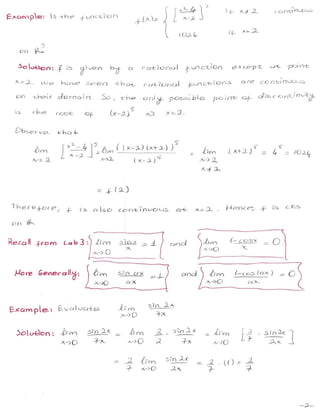 Example: Is the function f(x) = { [ (x²-4) / (x-2) ]⁵ if x≠2 continuous
1024 if x=2
on ℝ?
Solution: f is given by a rational function except at point
x=2. We have seen that rational functions are continuous
on their domain. So, the only possible point of discontinuity
is the root of (x-2)⁵ => x=2.
Observe that
lim x→2 [ (x²-4) / (x-2) ]⁵ = lim x→2 ((x-2)(x+2))⁵ / (x-2)⁵ = lim x→2 x≠2 (x+2)⁵ = 4⁵ = 1024
= f(2)
Therefore, f is also continuous at x=2. Hence, f is cts
on ℝ.
Recall from Lab 3: lim x→0 sinx / x = 1 and lim x→0 (1-cosx) / x = 0
More Generally: lim x→0 sin ax / ax = 1 and lim x→0 (1-cos(ax)) / ax = 0
Example: Evaluate lim x→0 sin 2x / 7x
Solution: lim x→0 sin 2x / 7x = lim x→0 2/2 · sin 2x / 7x = lim x→0 [ 2/7 · sin 2x / 2x ]
= 2/7 lim x→0 sin 2x / 2x = 2/7 · (1) = 2/7
-2-